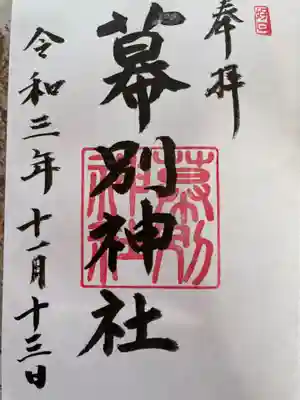 奉拝
幕別神社
幕別神社
令和三年十一月十三日